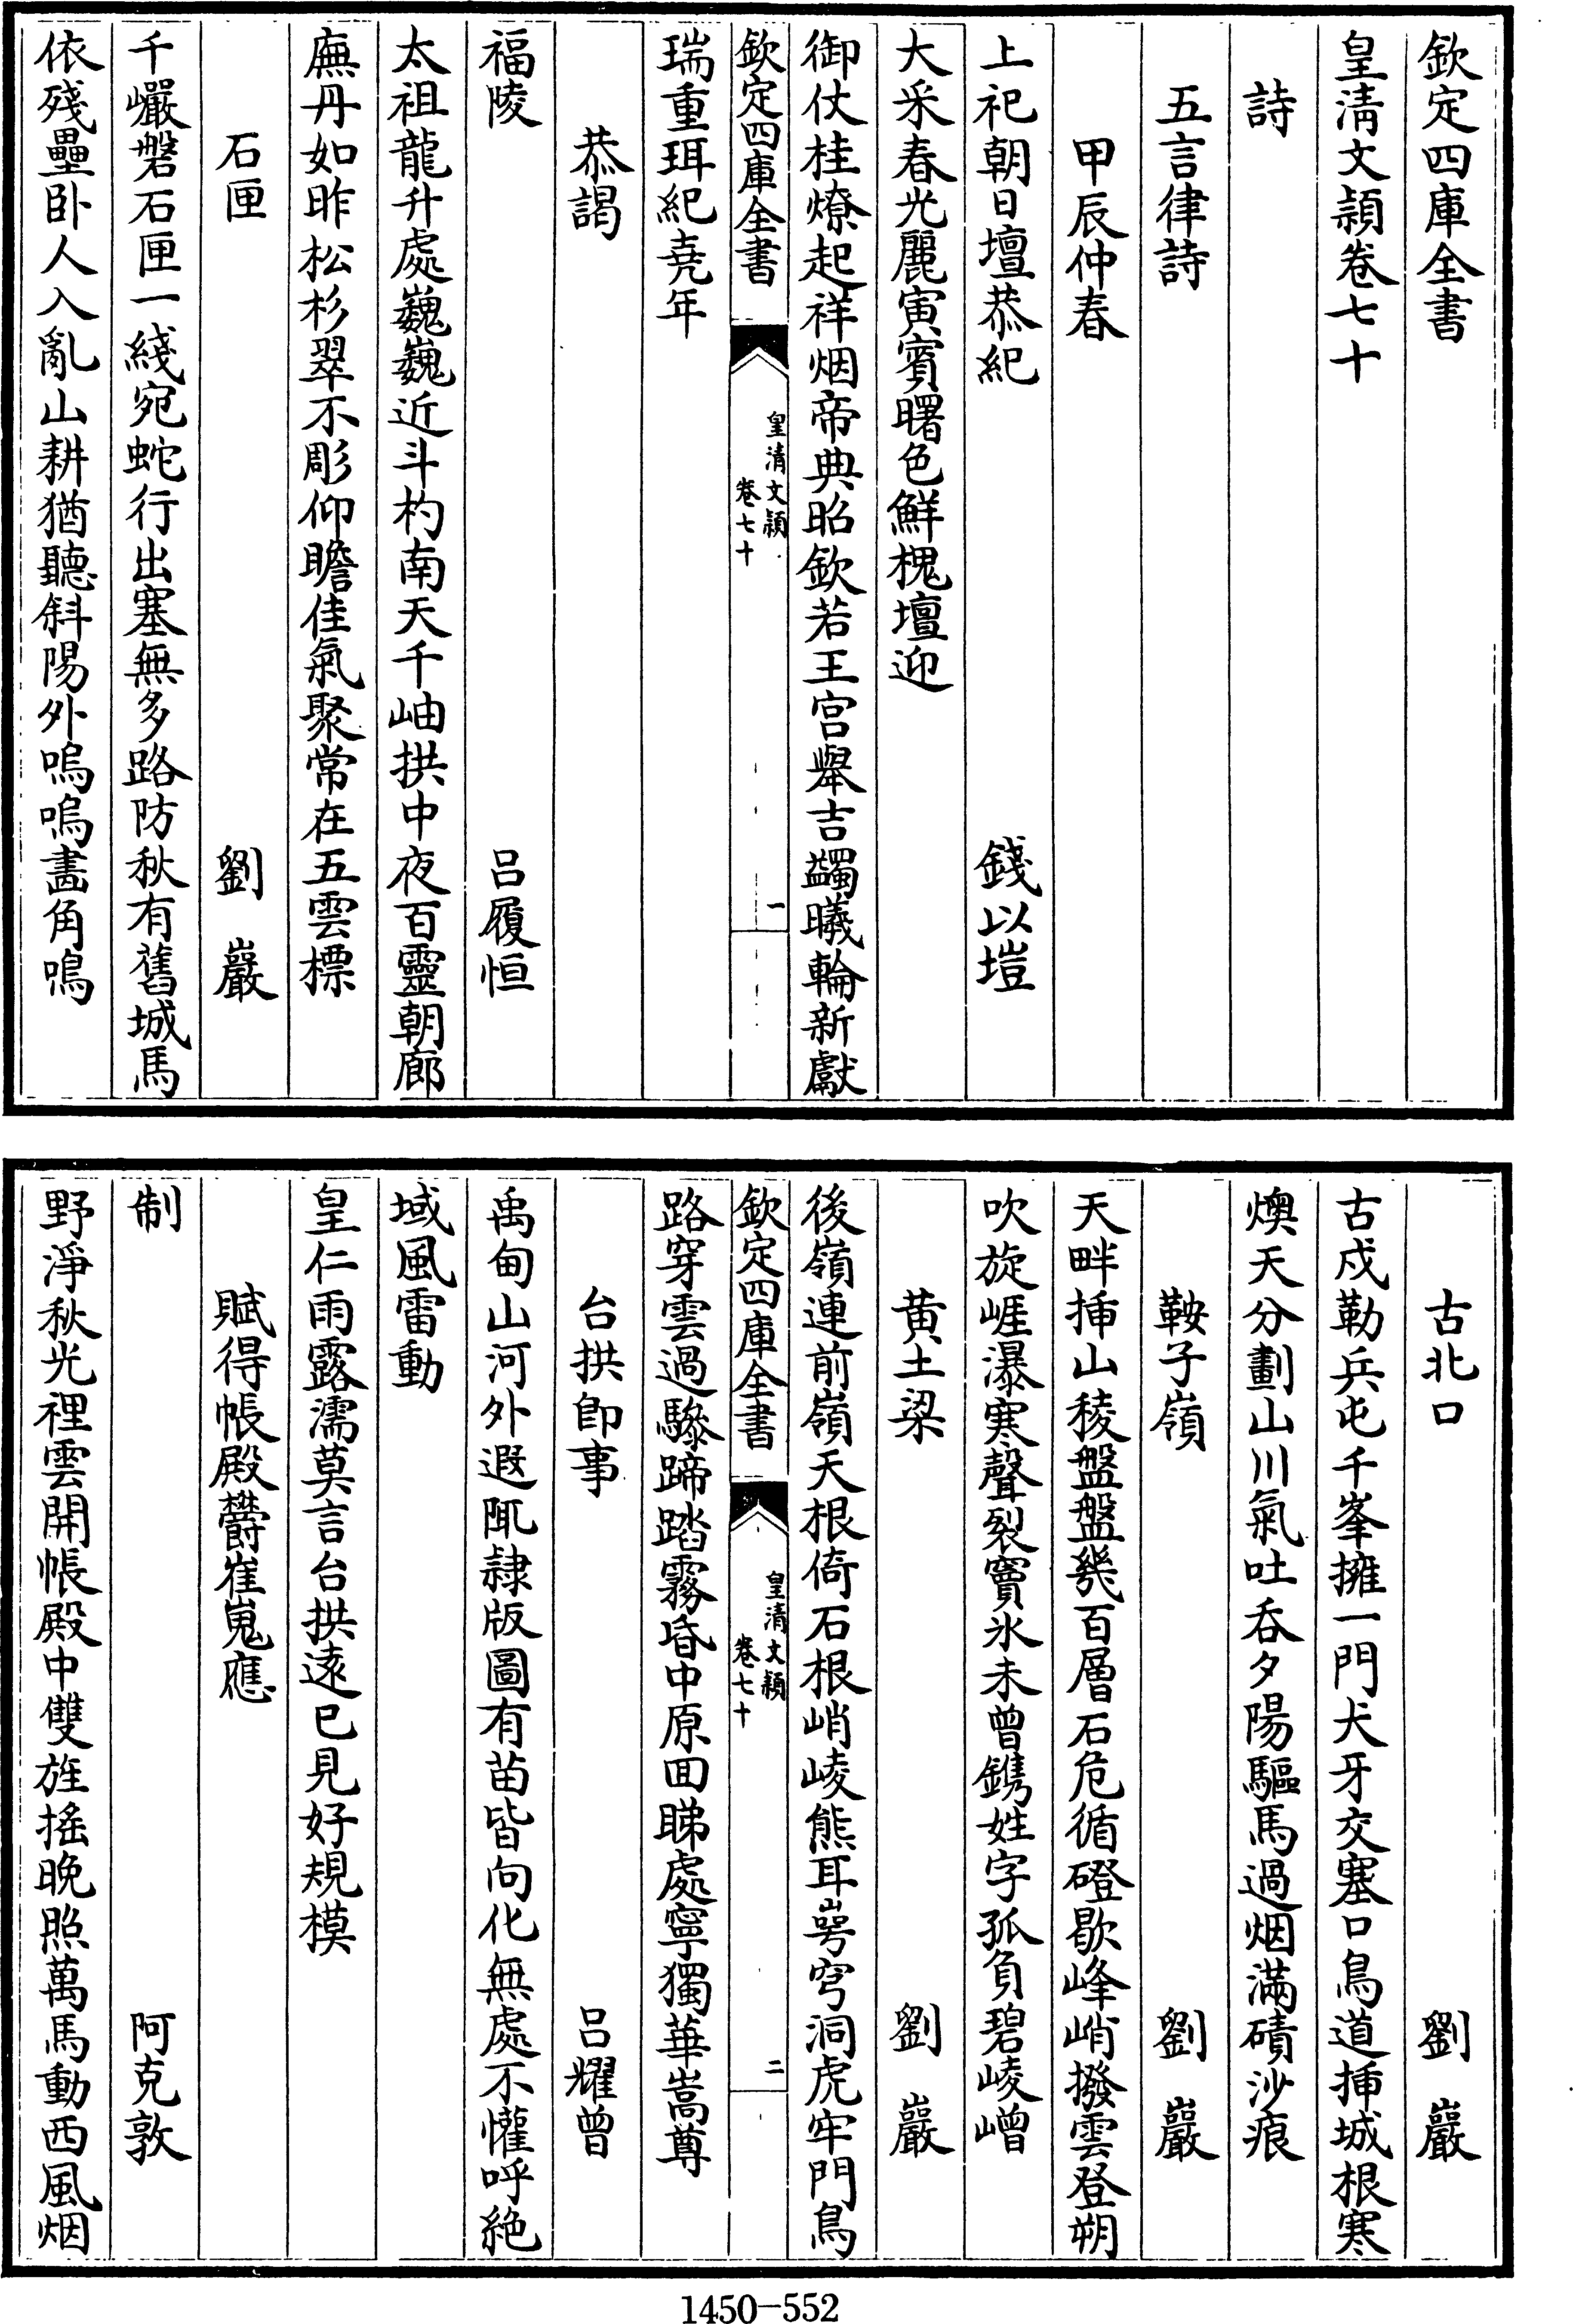 欽定四庫全書
皇清文穎卷七十
詩
五言律詩
甲辰仲春
上祀朝日壇恭紀　錢以塏
大采春光麗寅賓曙色鮮槐壇迎
御仗桂燎起祥烟帝典昭欽若王宮舉吉蠲曦輪新獻
欽定四庫全書　皇清文穎　卷七十　一
瑞重珥紀堯年
恭謁
福陵　呂履恒
太祖龍升處巍巍近斗杓南天千岫拱中夜百靈朝廊
廡丹如昨松杉翠不彫仰瞻佳氣聚常在五雲標
石匣　劉巖
千巖磐石匣一綫宛蛇行出塞無多路防秋有舊城馬
依殘壘卧人入亂山耕猶聽斜陽外嗚嗚畵角鳴
古北口　劉巖
古戍勒兵屯千峯擁一門犬牙交塞口鳥道揷城根寒
燠天分劃山川氣吐呑夕陽驅馬過烟滿磧沙痕
鞍子嶺　劉巖
天畔揷山稜盤盤幾百層石危循磴歇峰峭撥雲登朔
吹旋崕瀑寒聲裂竇氷未曾鐫姓字孤負碧崚嶒
黄土梁　劉巖
後嶺連前嶺天根倚石根峭崚熊耳㟧穹洞虎牢門鳥
欽定四庫全書　皇清文穎　卷七十　二
路穿雲過驂蹄踏霧昏中原回睇處寧獨華嵩尊
台拱即事　呂耀曾
禹甸山河外遐陬隸版圖有苗皆向化無處不懽呼絶
域風雷動
皇仁雨露濡莫言台拱遠已見好規模
賦得帳殿鬱崔嵬應
制　阿克敦
野淨秋光裡雲開帳殿中雙旌搖晚照萬馬動西風烟
1450—552